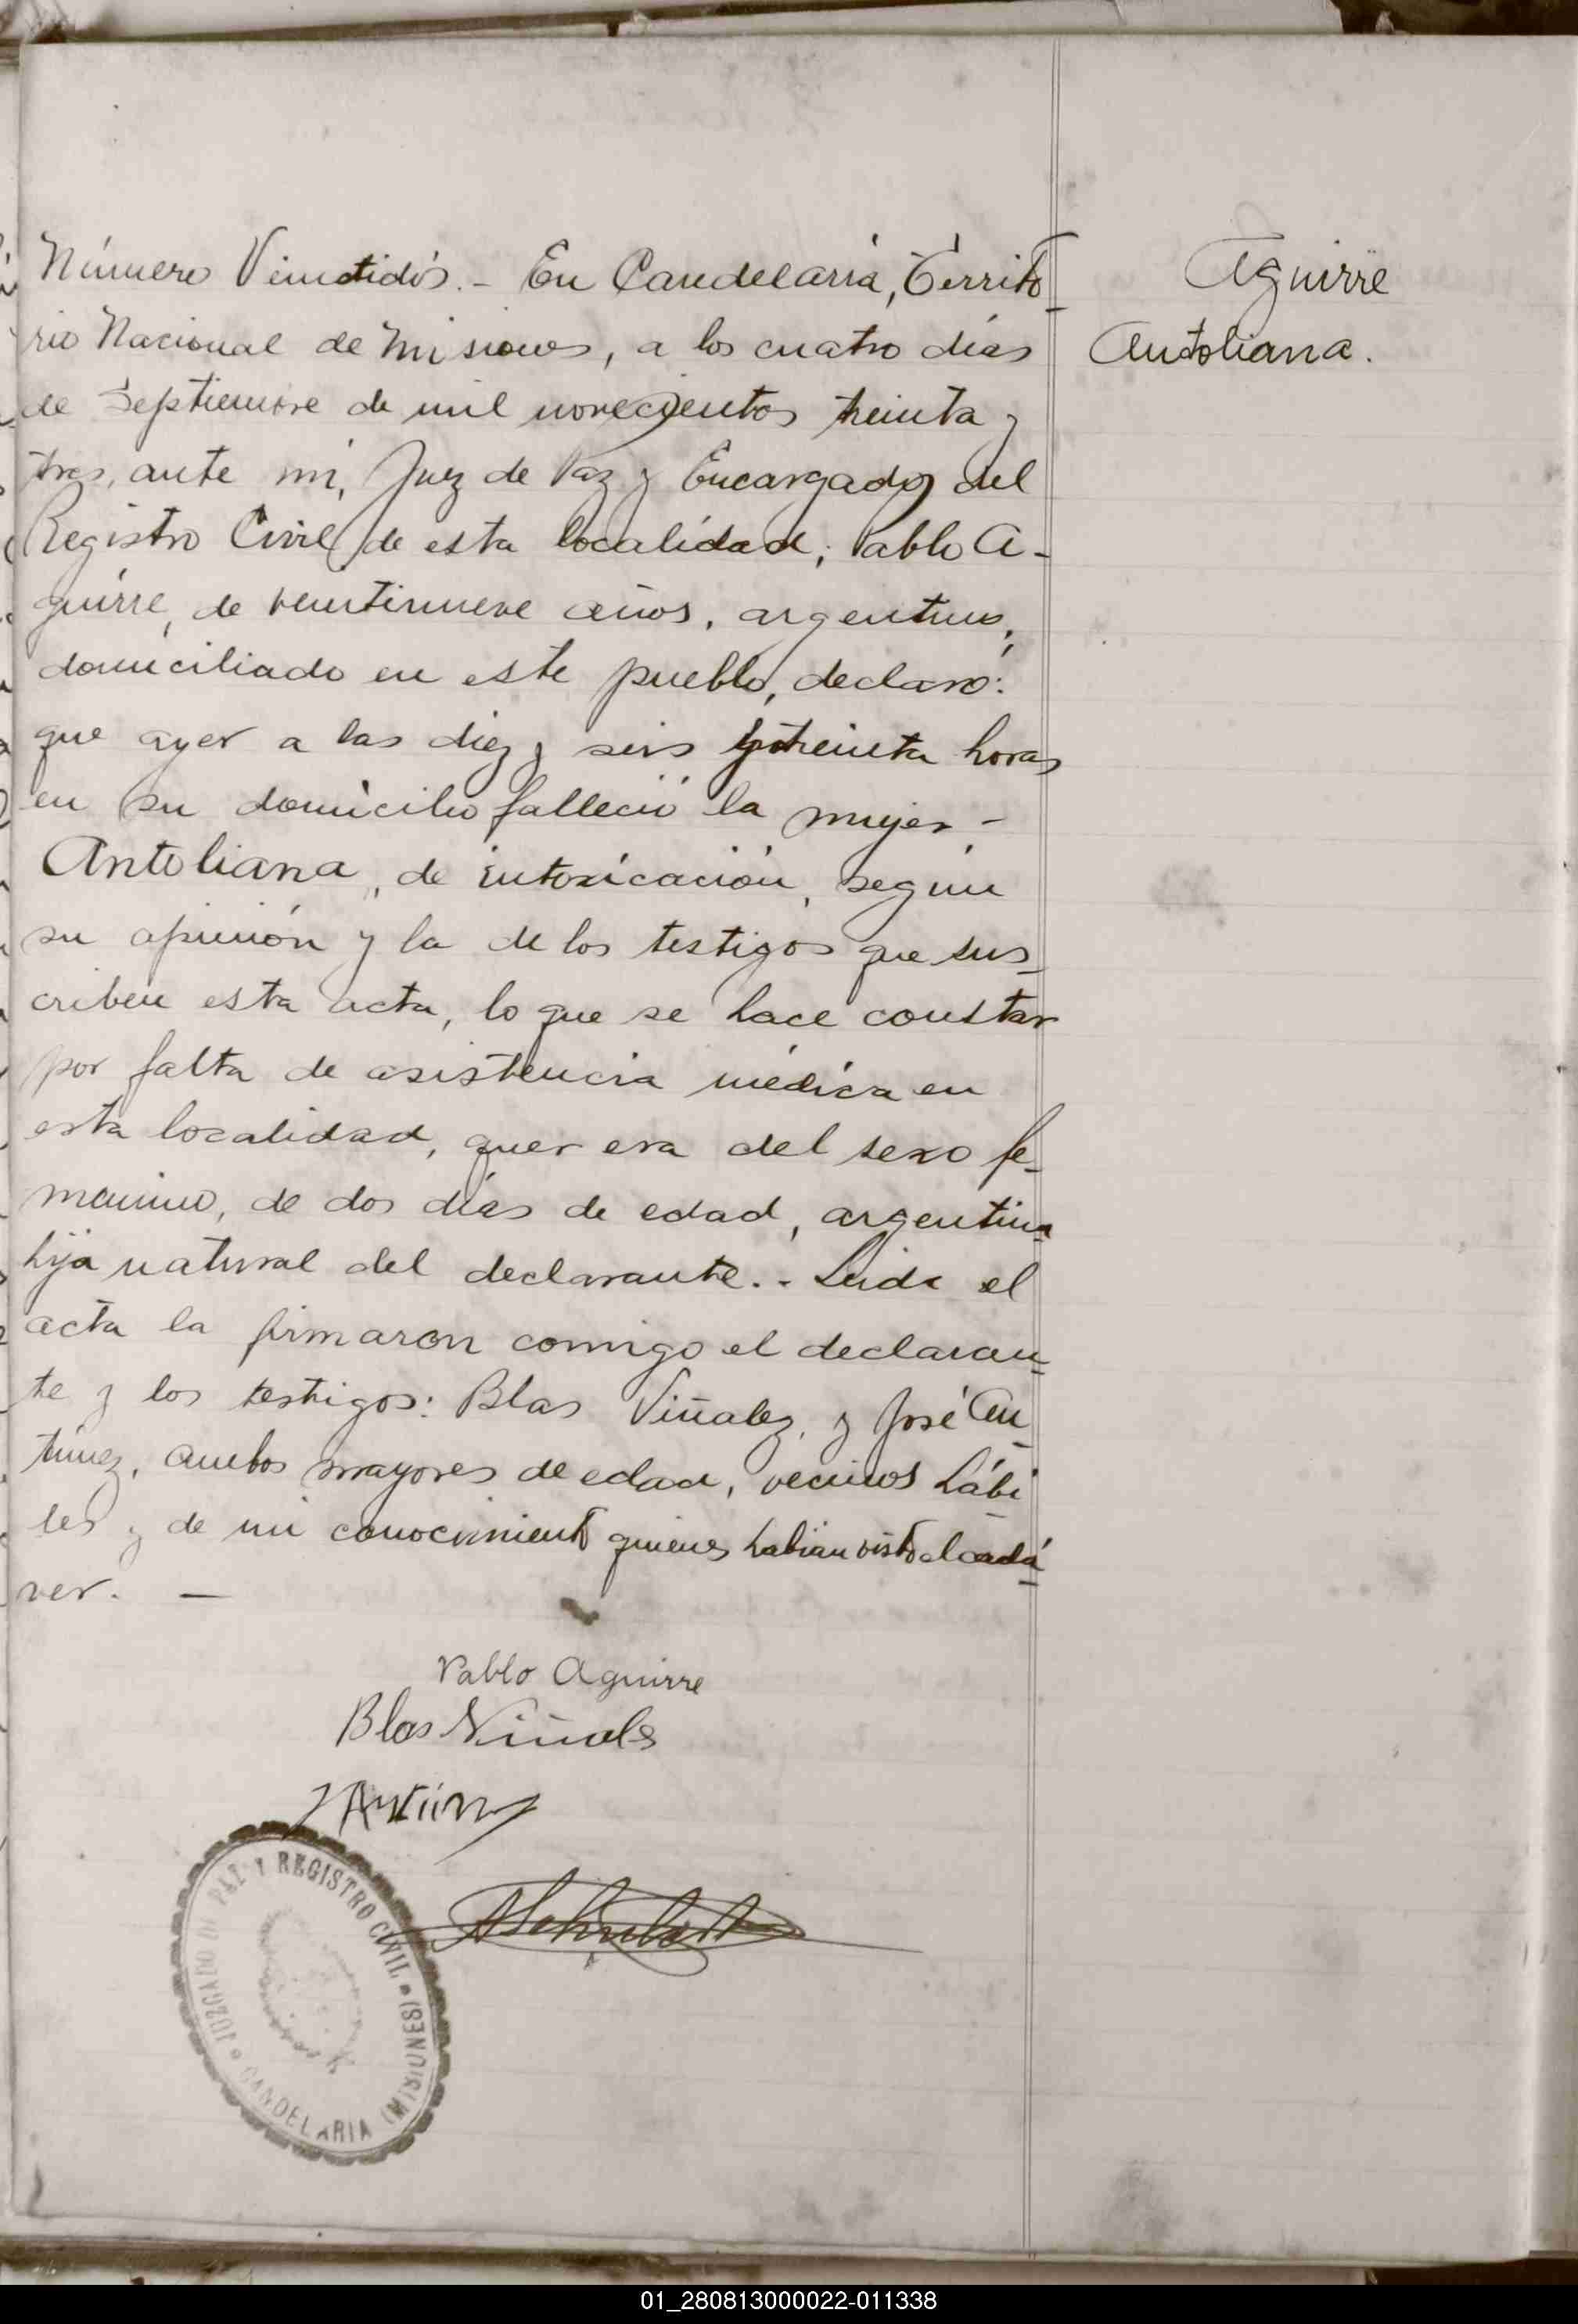 Número Veintidós.- En Candelaria, Territo-
rio Nacional de Misiones, a los cuatro días
de Septiembre de mil novecientos treinta y
tres, ante mi, Juez de Paz y Encargado del
Registro Civil de esta localidad; Pablo A-
guirre, de veintinueve años, argentino,
domiciliado en este pueblo, declaró:
que ayer a las diez y seis y treinta horas
en su domicilio falleció la mujer -
Antoliana, de intoxicación, según
su opinión y la de los testigos que sus-
criben esta acta, lo que se hace constar
por falta de asistencia médica en
esta localidad, quer era del sexo fe-
menino, de dos días de edad, argentina
hija natural del declarante.- Leida el
acta la firmaron comigo el declaran-
te y los testigos: Blas Viñalez, y José An-
túnez, ambos mayores de edad, vecinos hábi-
les y de mi conocimiento quienes habian visto el cadá-
ver. —
Aguirre
Antoliana.
Pablo Aguirre
Blas Viñales
JAntúnez
JUZGADO DE PAZ Y REGISTRO CIVIL • CANDELARIA (MISIONES) •
01_280813000022-011338